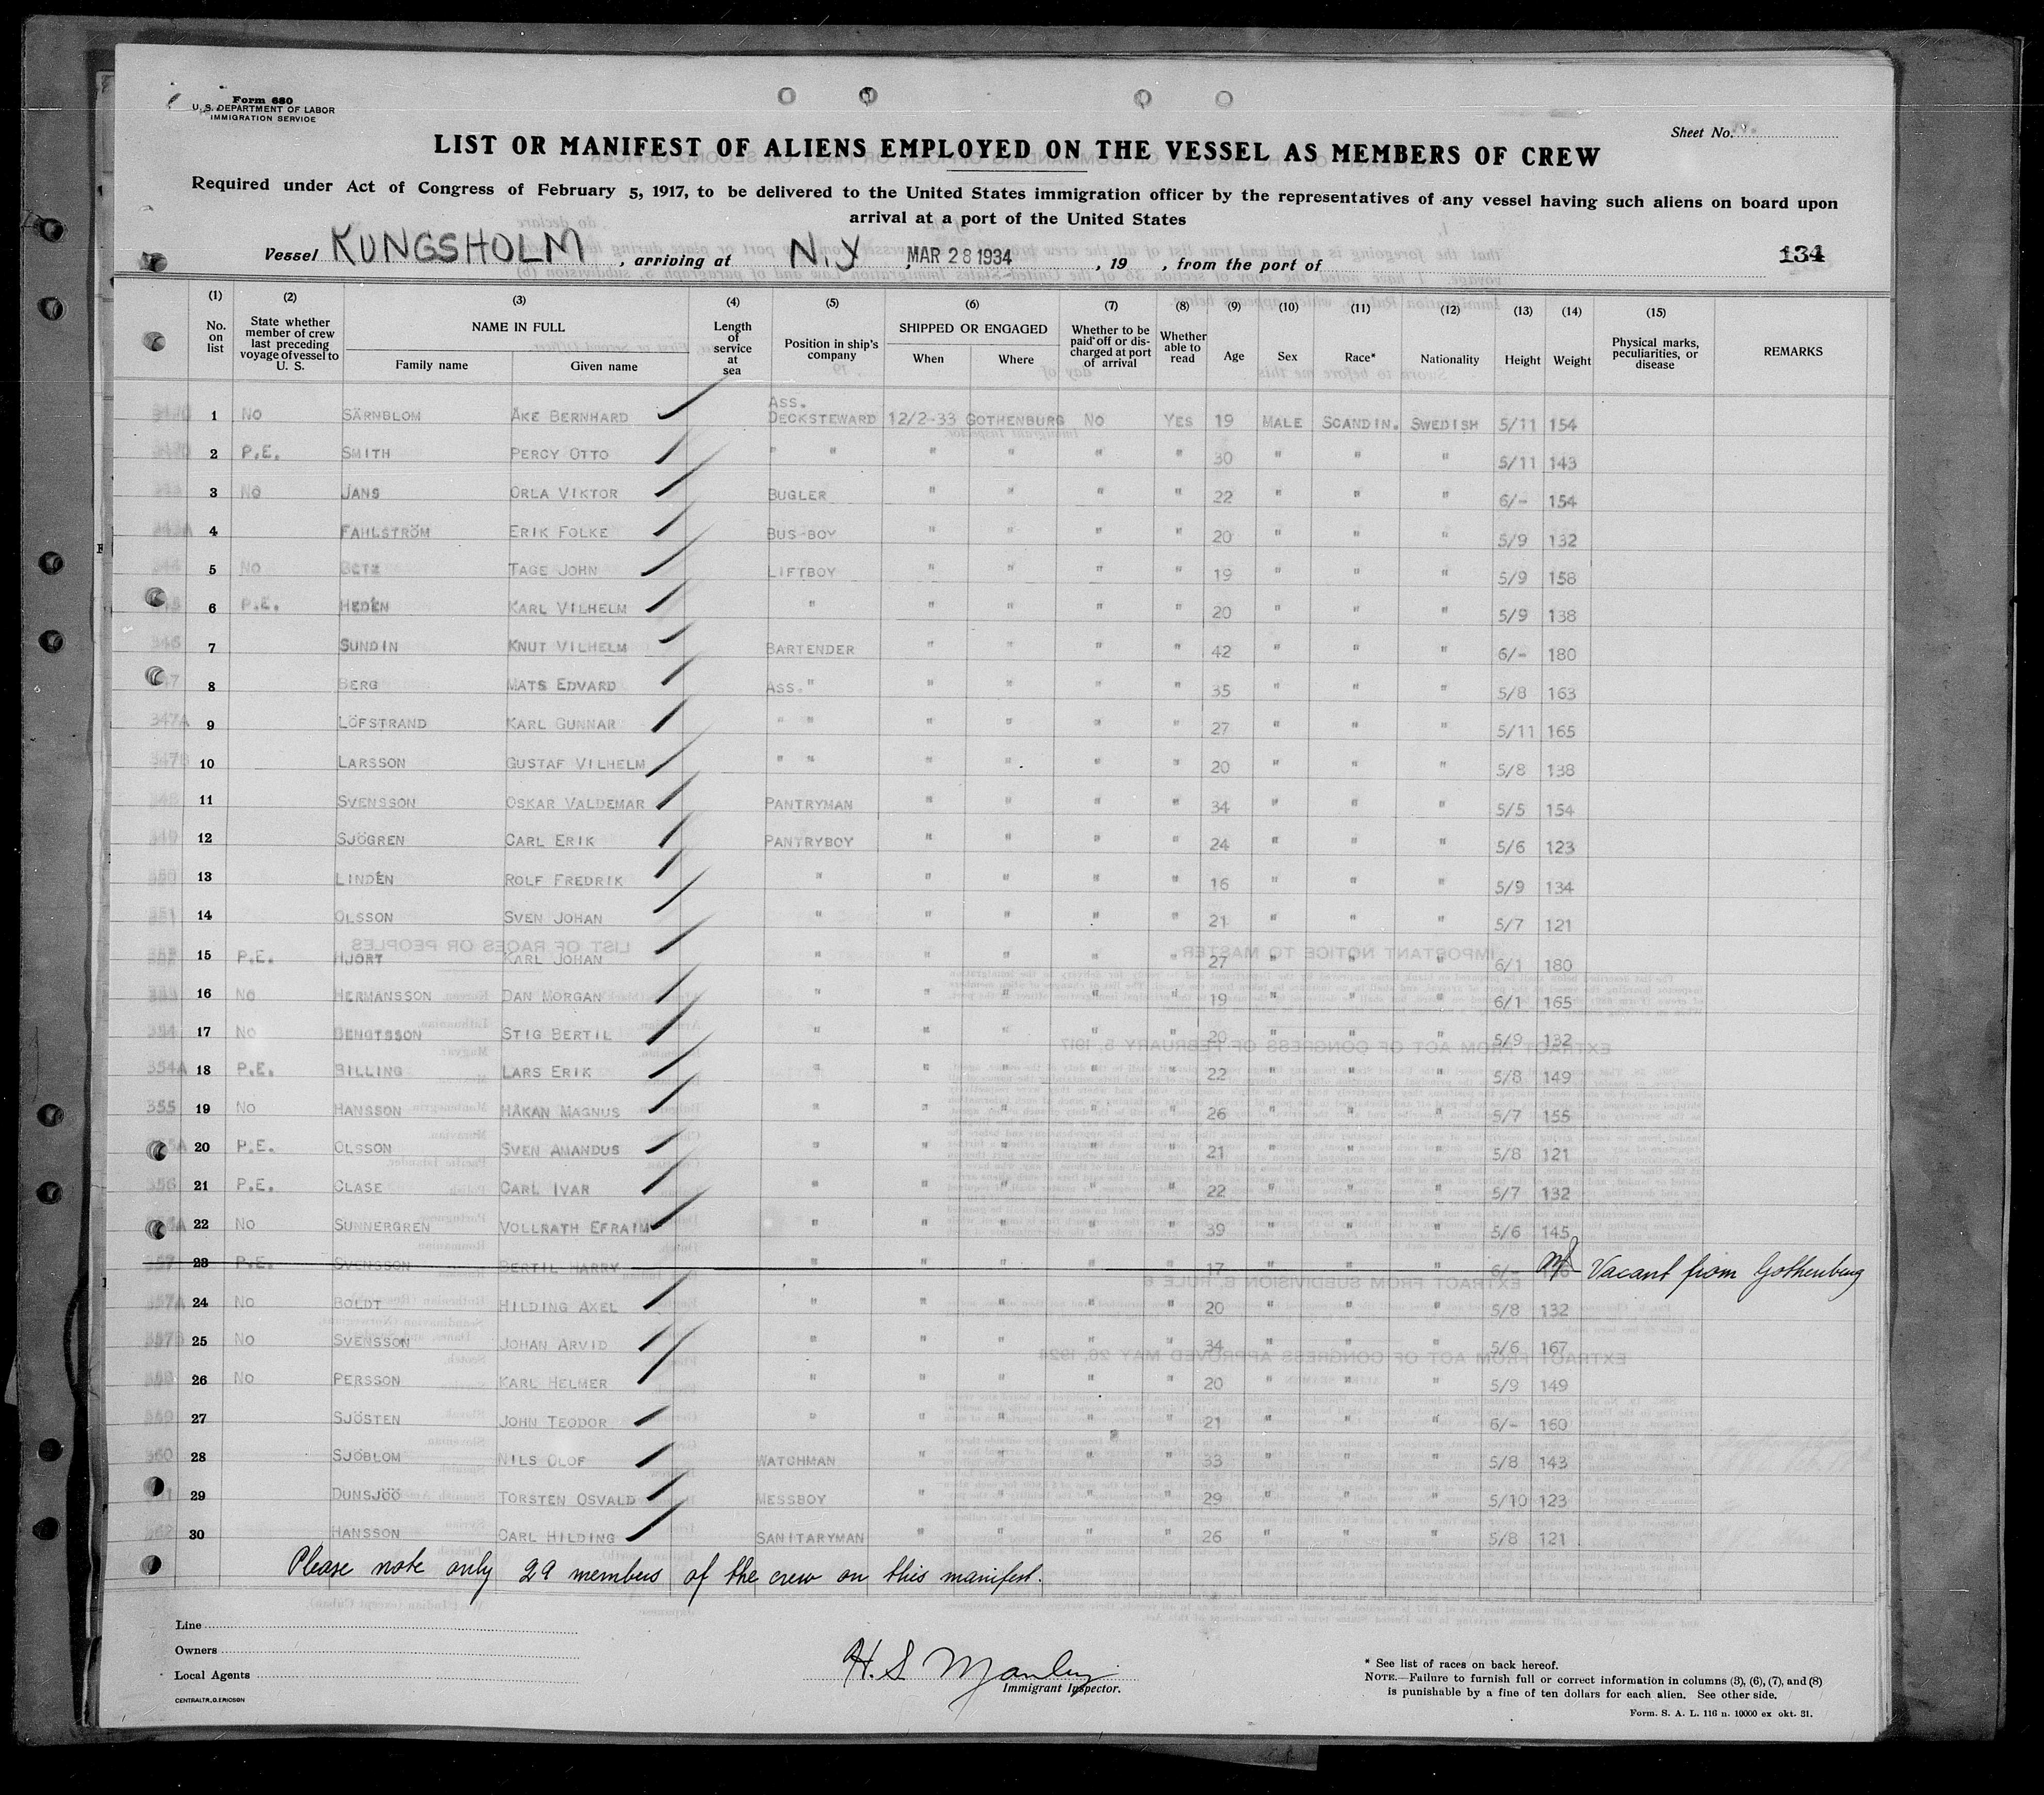 Form 680
U. S. DEPARTMENT OF LABOR
IMMIGRATION SERVICE
Sheet No.
LIST OR MANIFEST OF ALIENS EMPLOYED ON THE VESSEL AS MEMBERS OF CREW
Required under Act of Congress of February 5, 1917, to be delivered to the United States immigration officer by the representatives of any vessel having such aliens on board upon
arrival at a port of the United States
Vessel KUNGSHOLM, arriving at N.Y, MAR 28 1934, 19 , from the port of
134
(1) No. on list
(2) State whether member of crew last preceding voyage of vessel to U. S.
(3) NAME IN FULL Family name Given name
(4) Length of service at sea
(5) Position in ship's company
(6) SHIPPED OR ENGAGED When Where
(7) Whether to be paid off or discharged at port of arrival
(8) Whether able to read
(9) Age
(10) Sex
(11) Race*
(12) Nationality
(13) Height
(14) Weight
(15) Physical marks, peculiarities, or disease
REMARKS
1 NO SÄRNBLOM ÅKE BERNHARD ASS. DECKSTEWARD 12/2-33 GOTHENBURG NO YES 19 MALE SCANDIN. SWEDISH 5/11 154
2 P.E. SMITH PERCY OTTO " " " " " " 30 " " " 5/11 143
3 NO JANS ORLA VIKTOR BUGLER " " " " 22 " " " 6/- 154
4 FAHLSTRÖM ERIK FOLKE BUS-BOY " " " " 20 " " " 5/9 132
5 NO TAGE JOHN LIFTBOY " " " " 19 " " " 5/9 158
6 P.E. HEDÉN KARL VILHELM " " " " " 20 " " " 5/9 138
346 7 SUNDIN KNUT VILHELM BARTENDER " " " " 42 " " " 6/- 180
8 BERG MATS EDVARD ASS. " " " " " 35 " " " 5/8 163
347A 9 LÖFSTRAND KARL GUNNAR " " " " " " 27 " " " 5/11 165
347B 10 LARSSON GUSTAF VILHELM " " " " " " 20 " " " 5/8 138
348 11 SVENSSON OSKAR VALDEMAR PANTRYMAN " " " " 34 " " " 5/5 154
349 12 SJÖGREN CARL ERIK PANTRYBOY " " " " 24 " " " 5/6 123
350 13 LINDÉN ROLF FREDRIK " " " " " 16 " " " 5/9 134
351 14 OLSSON SVEN JOHAN " " " " " 21 " " " 5/7 121
15 P.E. HJORT KARL JOHAN " " " " " 27 " " " 6/1 180
16 NO HERMANSSON DAN MORGAN " " " " " 19 " " " 6/1 165
354 17 NO BENGTSSON STIG BERTIL " " " " " 20 " " " 5/9 132
354A 18 P.E. BILLING LARS ERIK " " " " " 22 " " " 5/8 149
355 19 NO HANSSON HÅKAN MAGNUS " " " " " 26 " " " 5/7 155
20 P.E. OLSSON SVEN AMANDUS " " " " " 21 " " " 5/8 121
356 21 P.E. CLASE CARL IVAR " " " " " 22 " " " 5/7 132
22 NO SUNNERGREN VOLLRATH EFRAIM " " " " " 39 " " " 5/6 145
357 23 P.E. SVENSSON BERTIL HARRY " " " " " 17 " " " 6/- Vacant from Gothenburg
357A 24 NO BOLDT HILDING AXEL " " " " " 20 " " " 5/8 132
357B 25 NO SVENSSON JOHAN ARVID " " " " " 34 " " " 5/6 167
26 NO PERSSON KARL HELMER " " " " " 20 " " " 5/9 149
359 27 SJÖSTEN JOHN TEODOR " " " " " 21 " " " 6/- 160
360 28 SJÖBLOM NILS OLOF WATCHMAN " " " " 33 " " " 5/8 143
29 DUNSJÖÖ TORSTEN OSVALD MESSBOY " " " " 29 " " " 5/10 123
30 HANSSON CARL HILDING SANITARYMAN " " " " 26 " " " 5/8 121
Please note only 29 members of the crew on this manifest.
Line
Owners
Local Agents
CENTRALTR., G. ERICSON
H. S. Manley
Immigrant Inspector.
* See list of races on back hereof.
NOTE.—Failure to furnish full or correct information in columns (3), (6), (7), and (8)
is punishable by a fine of ten dollars for each alien. See other side.
Form. S. A. L. 116 n. 10000 ex okt. 31.